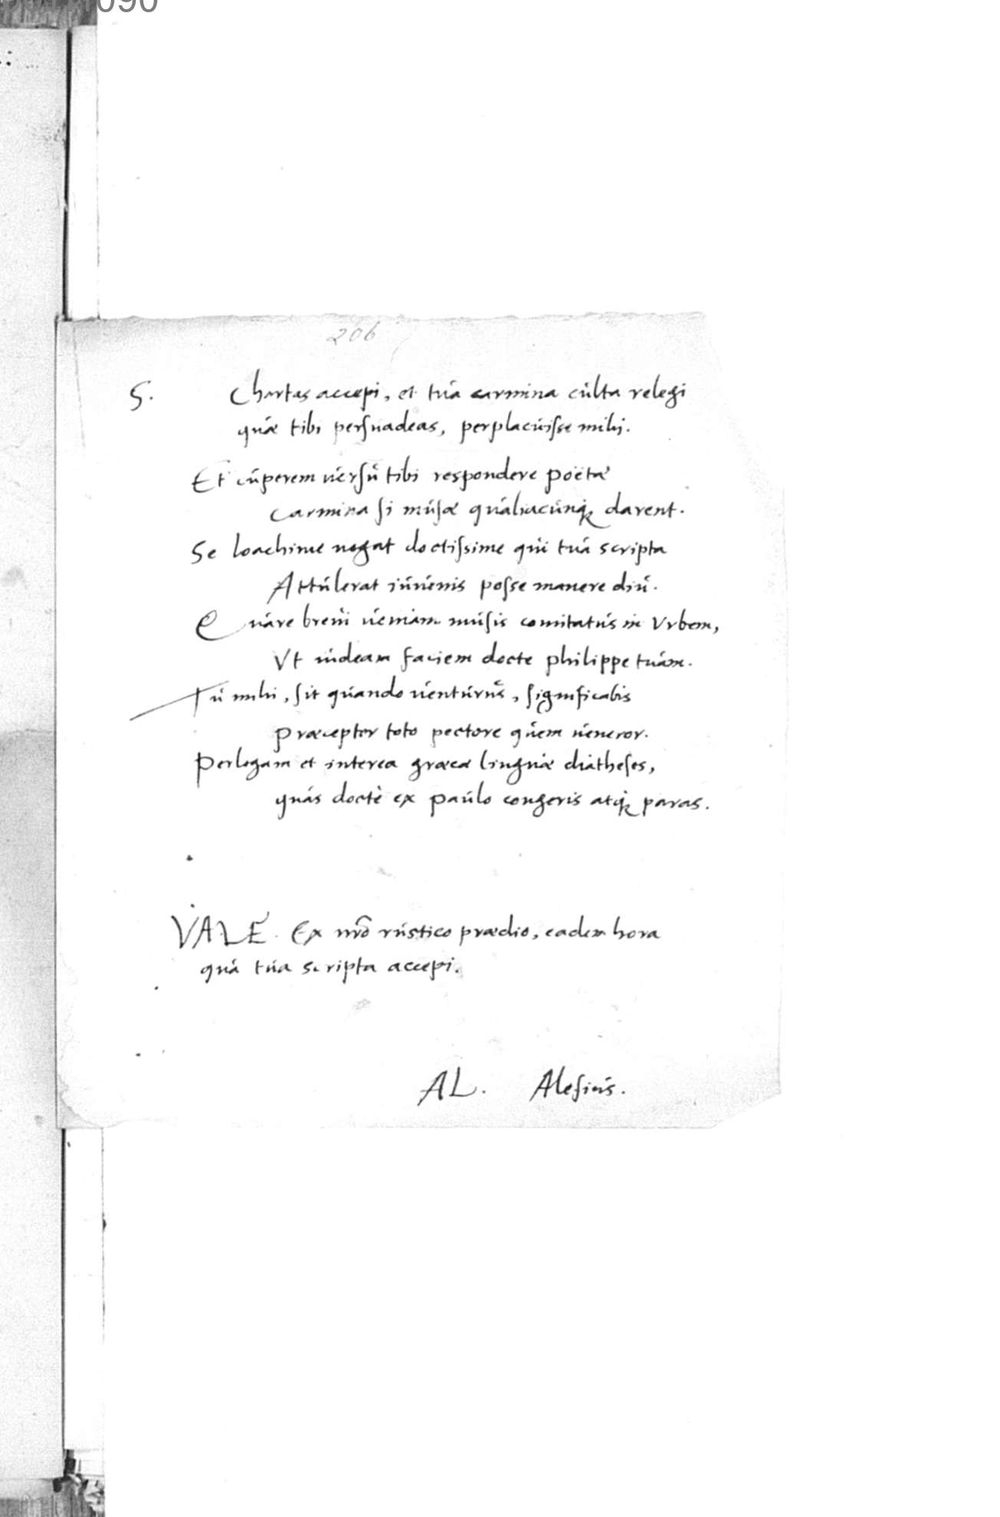 206
S. Chartas accepi, et tua carmina culta relegi
quæ tibi persuadeas, perplacuisse mihi.
Et cuperem versu tibi respondere poëtæ
Carmina si musæ qualiacunq; darent.
Se Ioachime negat doctissime qui tua scripta
Attulerat iuvenis posse manere diu.
Quare brevi veniam musis comitatus in Urbem,
Ut videam faciem docte philippe tuam.
Tu mihi, sit quando venturus, significabis
Præceptor toto pectore quem veneror.
Perlegam et interea græcæ linguæ diatheses,
quas doctè ex paulo congeris atq; paras.
VALE. Ex nrō rustico prædio, eadem hora
qua tua scripta accepi.
AL. Alesius.